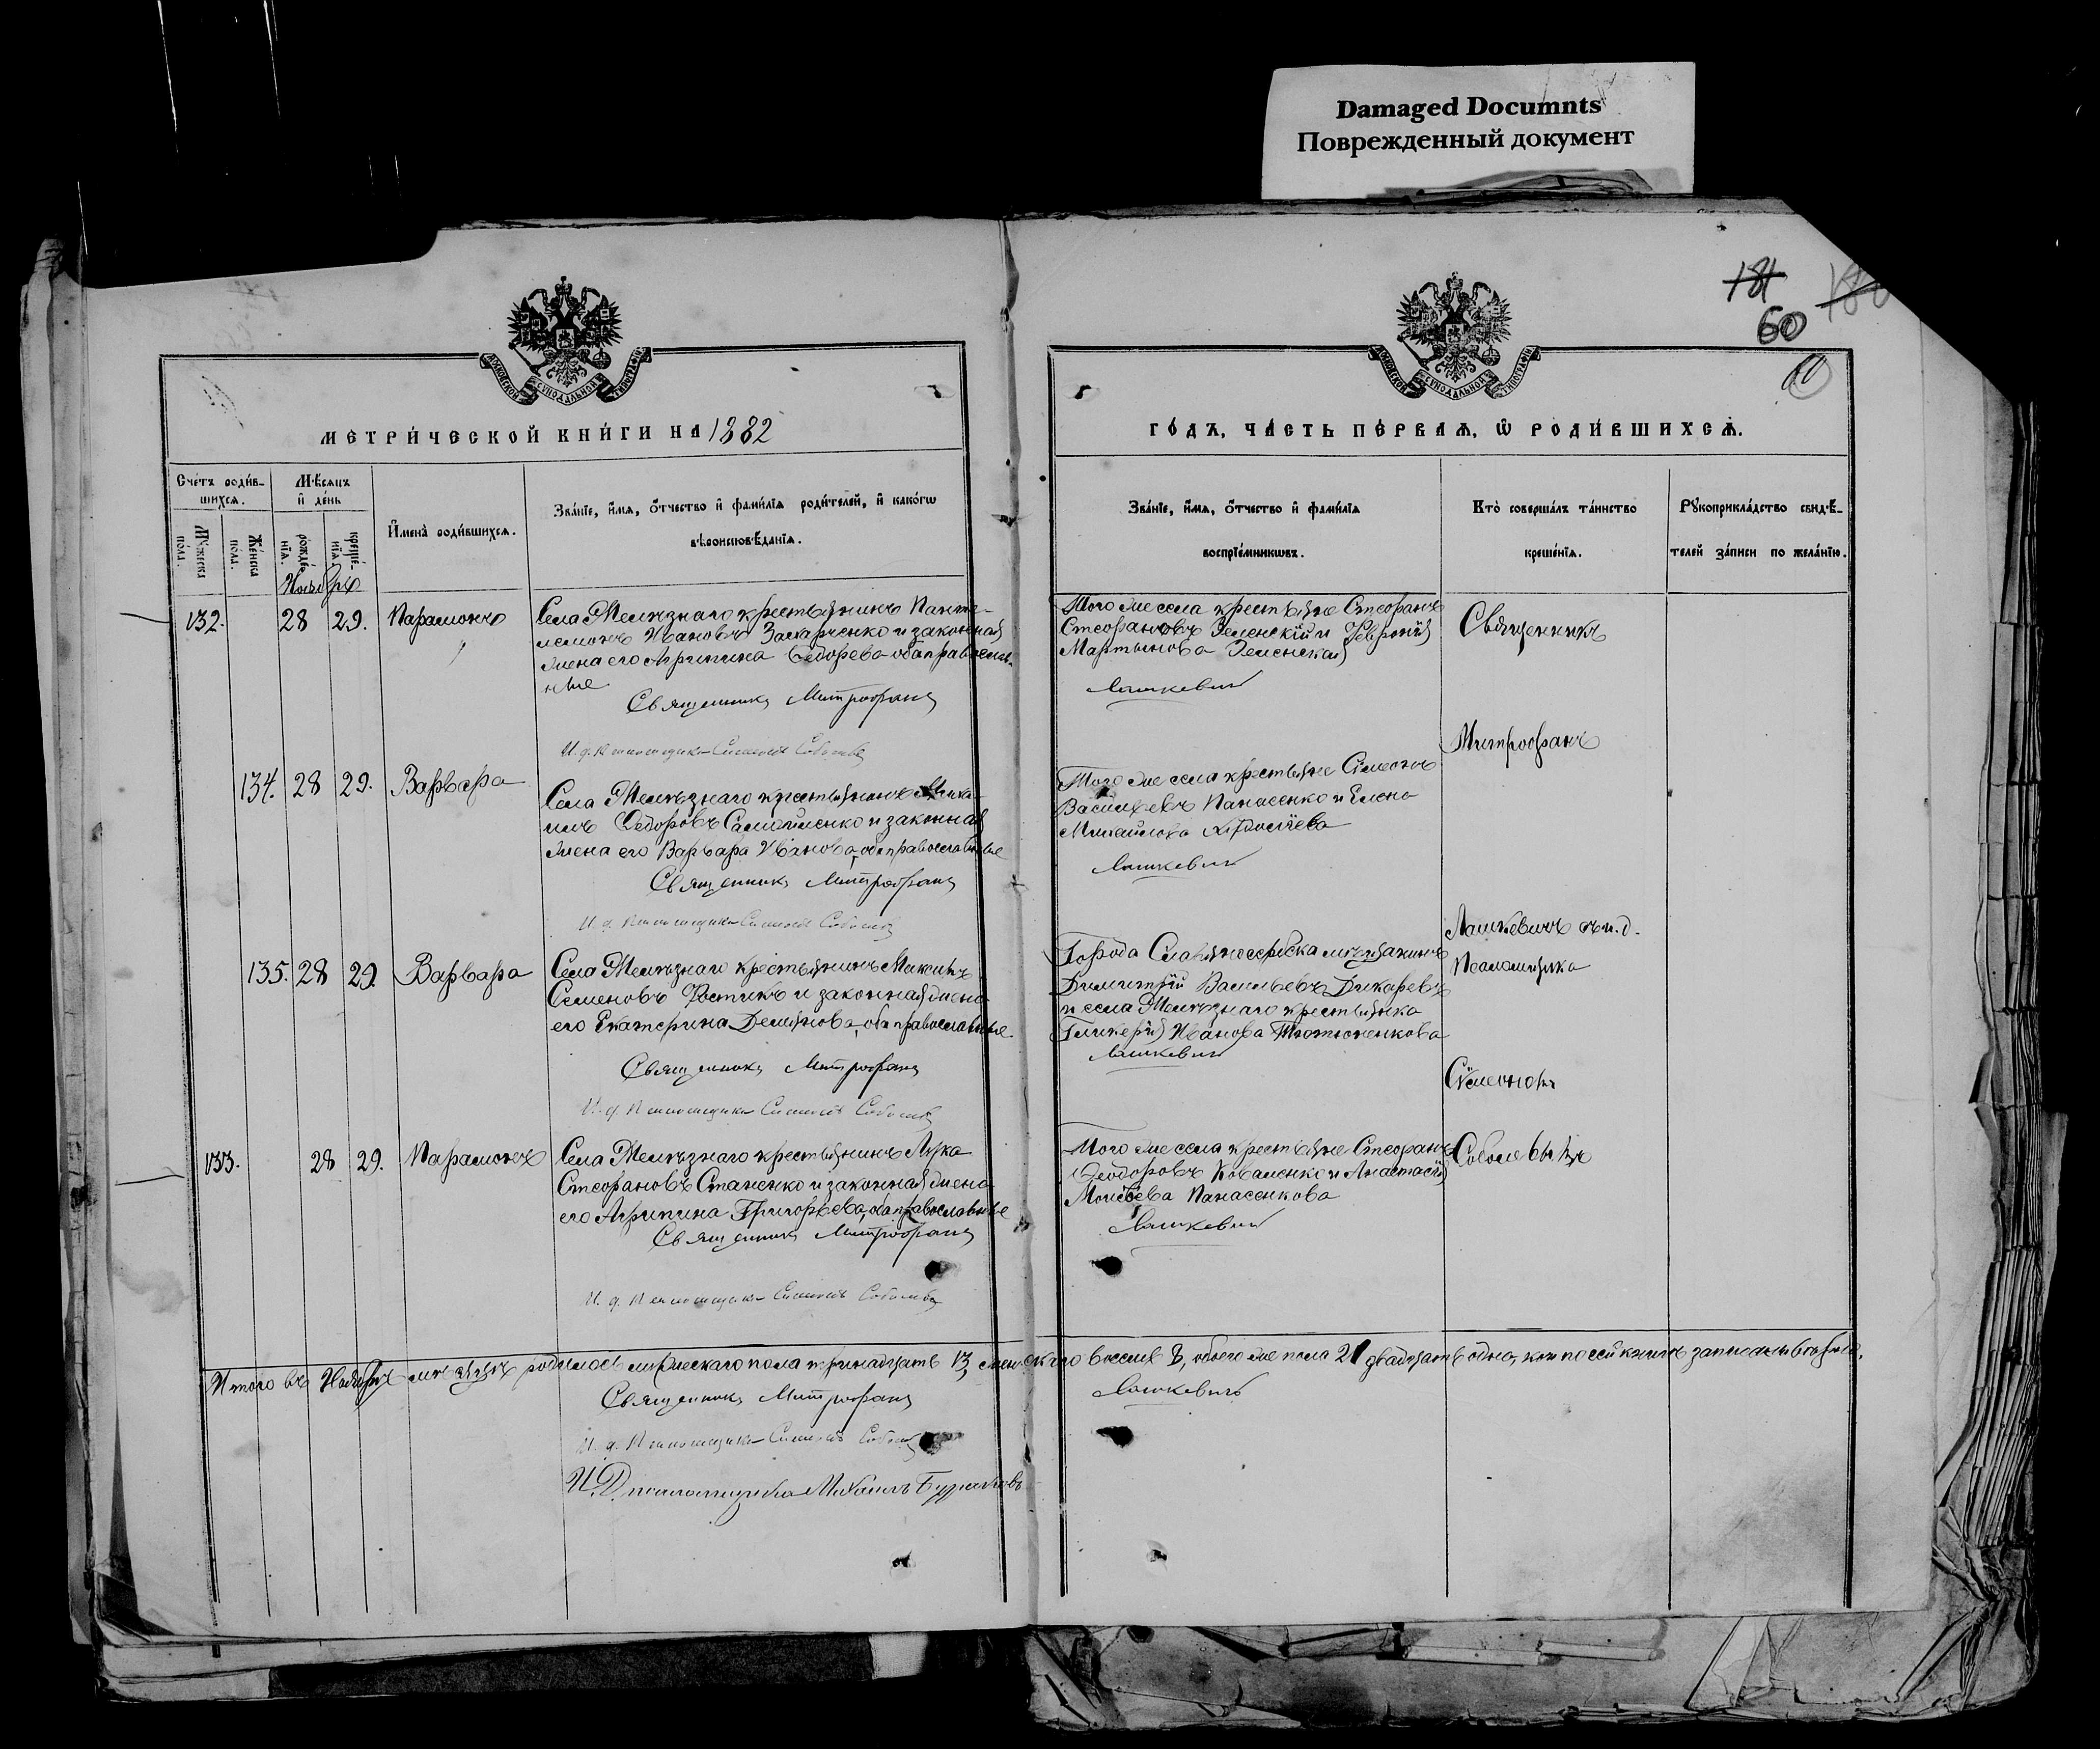 Damaged Documnts
Поврежденный документ
181
60
МОСКОВСКОЙ СУНОДАЛЬНОЙ ТИПОГРАФІИ
МОСКОВСКОЙ СУНОДАЛЬНОЙ ТИПОГРАФІИ
МЕТРИ́ЧЕСКОЙ КНИ́ГИ НА 1882
ГО́ДЪ, ЧА́СТЬ ПЕ́РВАѦ, Ѡ РОДИ́ВШИХСѦ.
Сче́тъ роди́в-
шихсѧ.
Мѣ́сѧцъ
и҆ де́нь
И҆мена̀ роди́вшихсѧ.
Зва́нїе, и҆́мѧ, ѻ҆́тчество и҆ фами́лїѧ роди́телей, и҆ како́гѡ
вѣроисповѣ́данїѧ.
Му́жеска
по́ла.
Же́нска
по́ла.
рожде́-
нїѧ.
креще́-
нїѧ.
Зва́нїе, и҆́мѧ, ѻ҆́тчество и҆ фами́лїѧ
воспрїе́мникѡвъ.
Кто̀ соверша́лъ та́инство
креще́нїѧ.
Рꙋкоприкла́дство свидѣ́-
телей за́писи по жела́нїю.
Ноябрь
132. 28 29. Парамонъ
Села Желѣзнаго крестьянинъ Панте-
леимонъ Ивановъ Захарченко и законная
жена его Агрипина Ѳедорева оба православ-
ные
Священникъ Митрофанъ
И. д. Псаломщика Симеонъ Соболевъ
Того же села крестьяне Стефанъ
Стефановъ Зеленскій и Февронія
Мартынова Зеленская
Лашкевичъ
Священникъ
Митрофанъ
134. 28 29. Варвара
Села Желѣзнаго крестьянинъ Миха-
илъ Ѳедоровъ Самойленко и законная
жена его Варвара Иванова, оба православные
Священникъ Митрофанъ
И. д. Псаломщика Симеонъ
Того же села крестьяне Сѷмеонъ
Васильевъ Панасенко и Елена
Михайлова
Лашкевичъ
Лашкевичъ съ и. д.
Псаломщика
135. 28 29. Варвара
Села Желѣзнаго крестьянинъ Максимъ
Семеновъ Костикъ и законная жена
его Екатерина Демьянова, оба православные
Священникъ Митрофанъ
И. д. Псаломщика Симеонъ
Города Славяносербска мѣщанинъ
Димитрій Васильевъ Дикаревъ
и села Желѣзнаго крестьянка
Гликерія Иванова Тютюнникова
Лашкевичъ
Сѷмеономъ
133. 28 29. Парамонъ
Села Желѣзнаго крестьянинъ Лука
Стефановъ Стаценко и законная жена
его Агрипина Григорьева, оба православные
Священникъ Митрофанъ
И. д. Псаломщика Симеонъ
Того же села крестьяне Стефанъ
Ѳеодоровъ Коваленко и Анастасія
Моисеева Панасенкова
Лашкевичъ
Соболевымъ
Итого въ Ноябрѣ мѣсяцѣ родилось мужескаго пола тринадцать 13, женскаго восемь 8, обоего же пола 21 двадцать одно, кои по сей книгѣ записаны вѣрно.
Священникъ Митрофанъ
Лашкевичъ
И. д. Псаломщика Симеонъ
И. Д. псаломщика Михаилъ Бурлаковъ